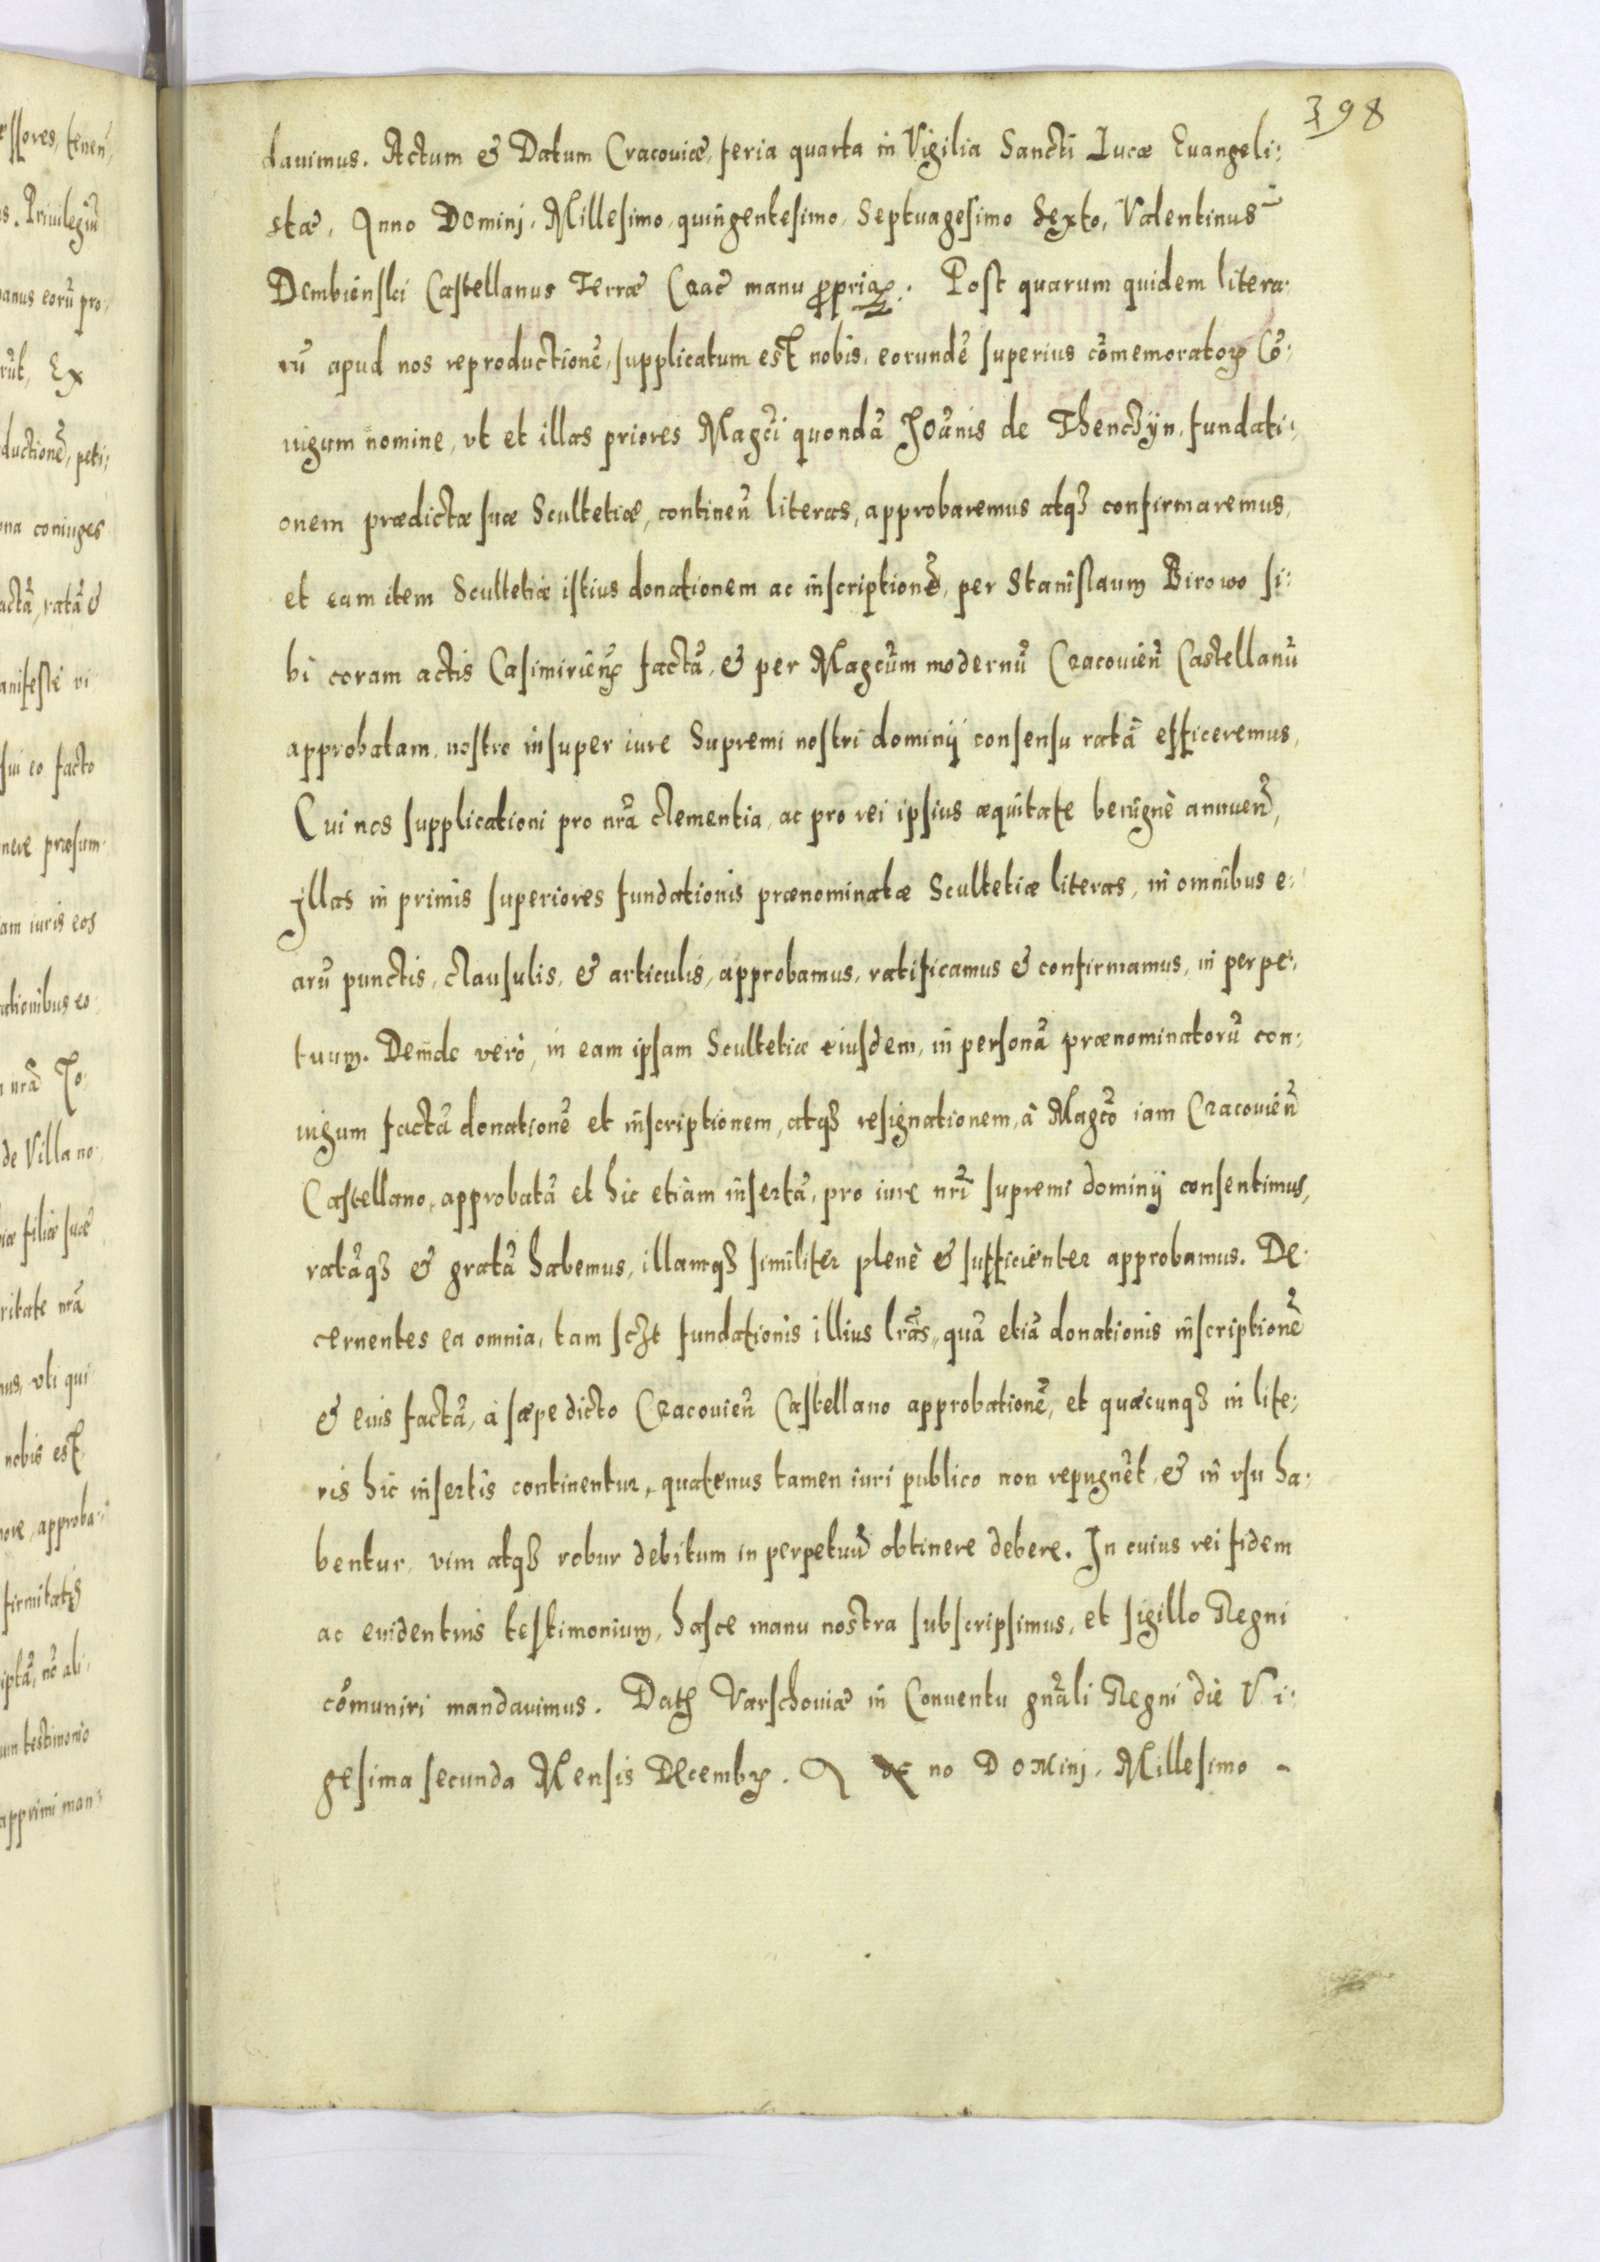 398
dauimus. Actum & Datum Cracouiæ, feria quarta in Vigilia Sancti Lucæ Euangeli:
stæ, Anno Dominj, Millesimo, quingentesimo, Septuagesimo Sexto, Valentinus
Dembienski Castellanus Terræ Crac̃ manu ꝓpria. Post quarum quidem litera:
rũ apud nos reproductionẽ, supplicatum est nobis, eorundẽ superius cõmemoratoꝝ Cõ:
iugum nomine, vt et illas priores Magc̃i quondã Joãnis de Thenczyn, fundati:
onem prædictæ suæ Scultetiæ, continen̄ literas, approbaremus atqꝫ confirmaremus,
et eam item Scultetiæ istius donationem ac inscriptionẽ, per Stanislaum Birowo si:
bi coram actis Casimirien̄ factã, & per Magcũm modernũ Cracovien̄ Castellanũ
approbatam, nostro insuper iure Supremi nostri dominij consensu ratã efficeremus,
Cui nos supplicationi pro nr̃a clementia, ac pro rei ipsius æquitate benignè annuen̄,
jllas in primis superiores fundationis prænominatæ Scultetiæ literas, in omnibus e:
arũ punctis, clausulis, & articulis, approbamus, ratificamus & confirmamus, in perpe:
tuum. Deinde verò, in eam ipsam Scultetiæ eiusdem, in personã prænominatorũ con:
iugum factã donationẽ et inscriptionem, atqꝫ resignationem, à Magc̃o iam Cracouien̄
Castellano, approbatã et hic etiam insertã, pro iure nr̃i supremi dominij consentimus,
ratãqꝫ & gratã habemus, illamqꝫ similiter plenè & sufficienter approbamus. De:
cernentes ea omnia, tam scꝫt fundationis illius lr̃as, quã etiã donationis inscriptionẽ
& eius factã, à sæpe dicto Cracouien̄ Castellano approbationẽ, et quæcunqꝫ in lite:
ris hic insertis continentur, quatenus tamen iuri publico non repugnẽt, & in vsu ha:
bentur, vim atqꝫ robur debitum in perpetuũ obtinere debere. In cuius rei fidem
ac euidentius testimonium, hasce manu nostra subscripsimus, et sigillo Regni
cõmuniri mandauimus. Datꝫ Varschouiæ in Conuentu gnãli Regni die Vi:
gesima secunda Mensis Decembꝝ. A no Dominj, Millesimo